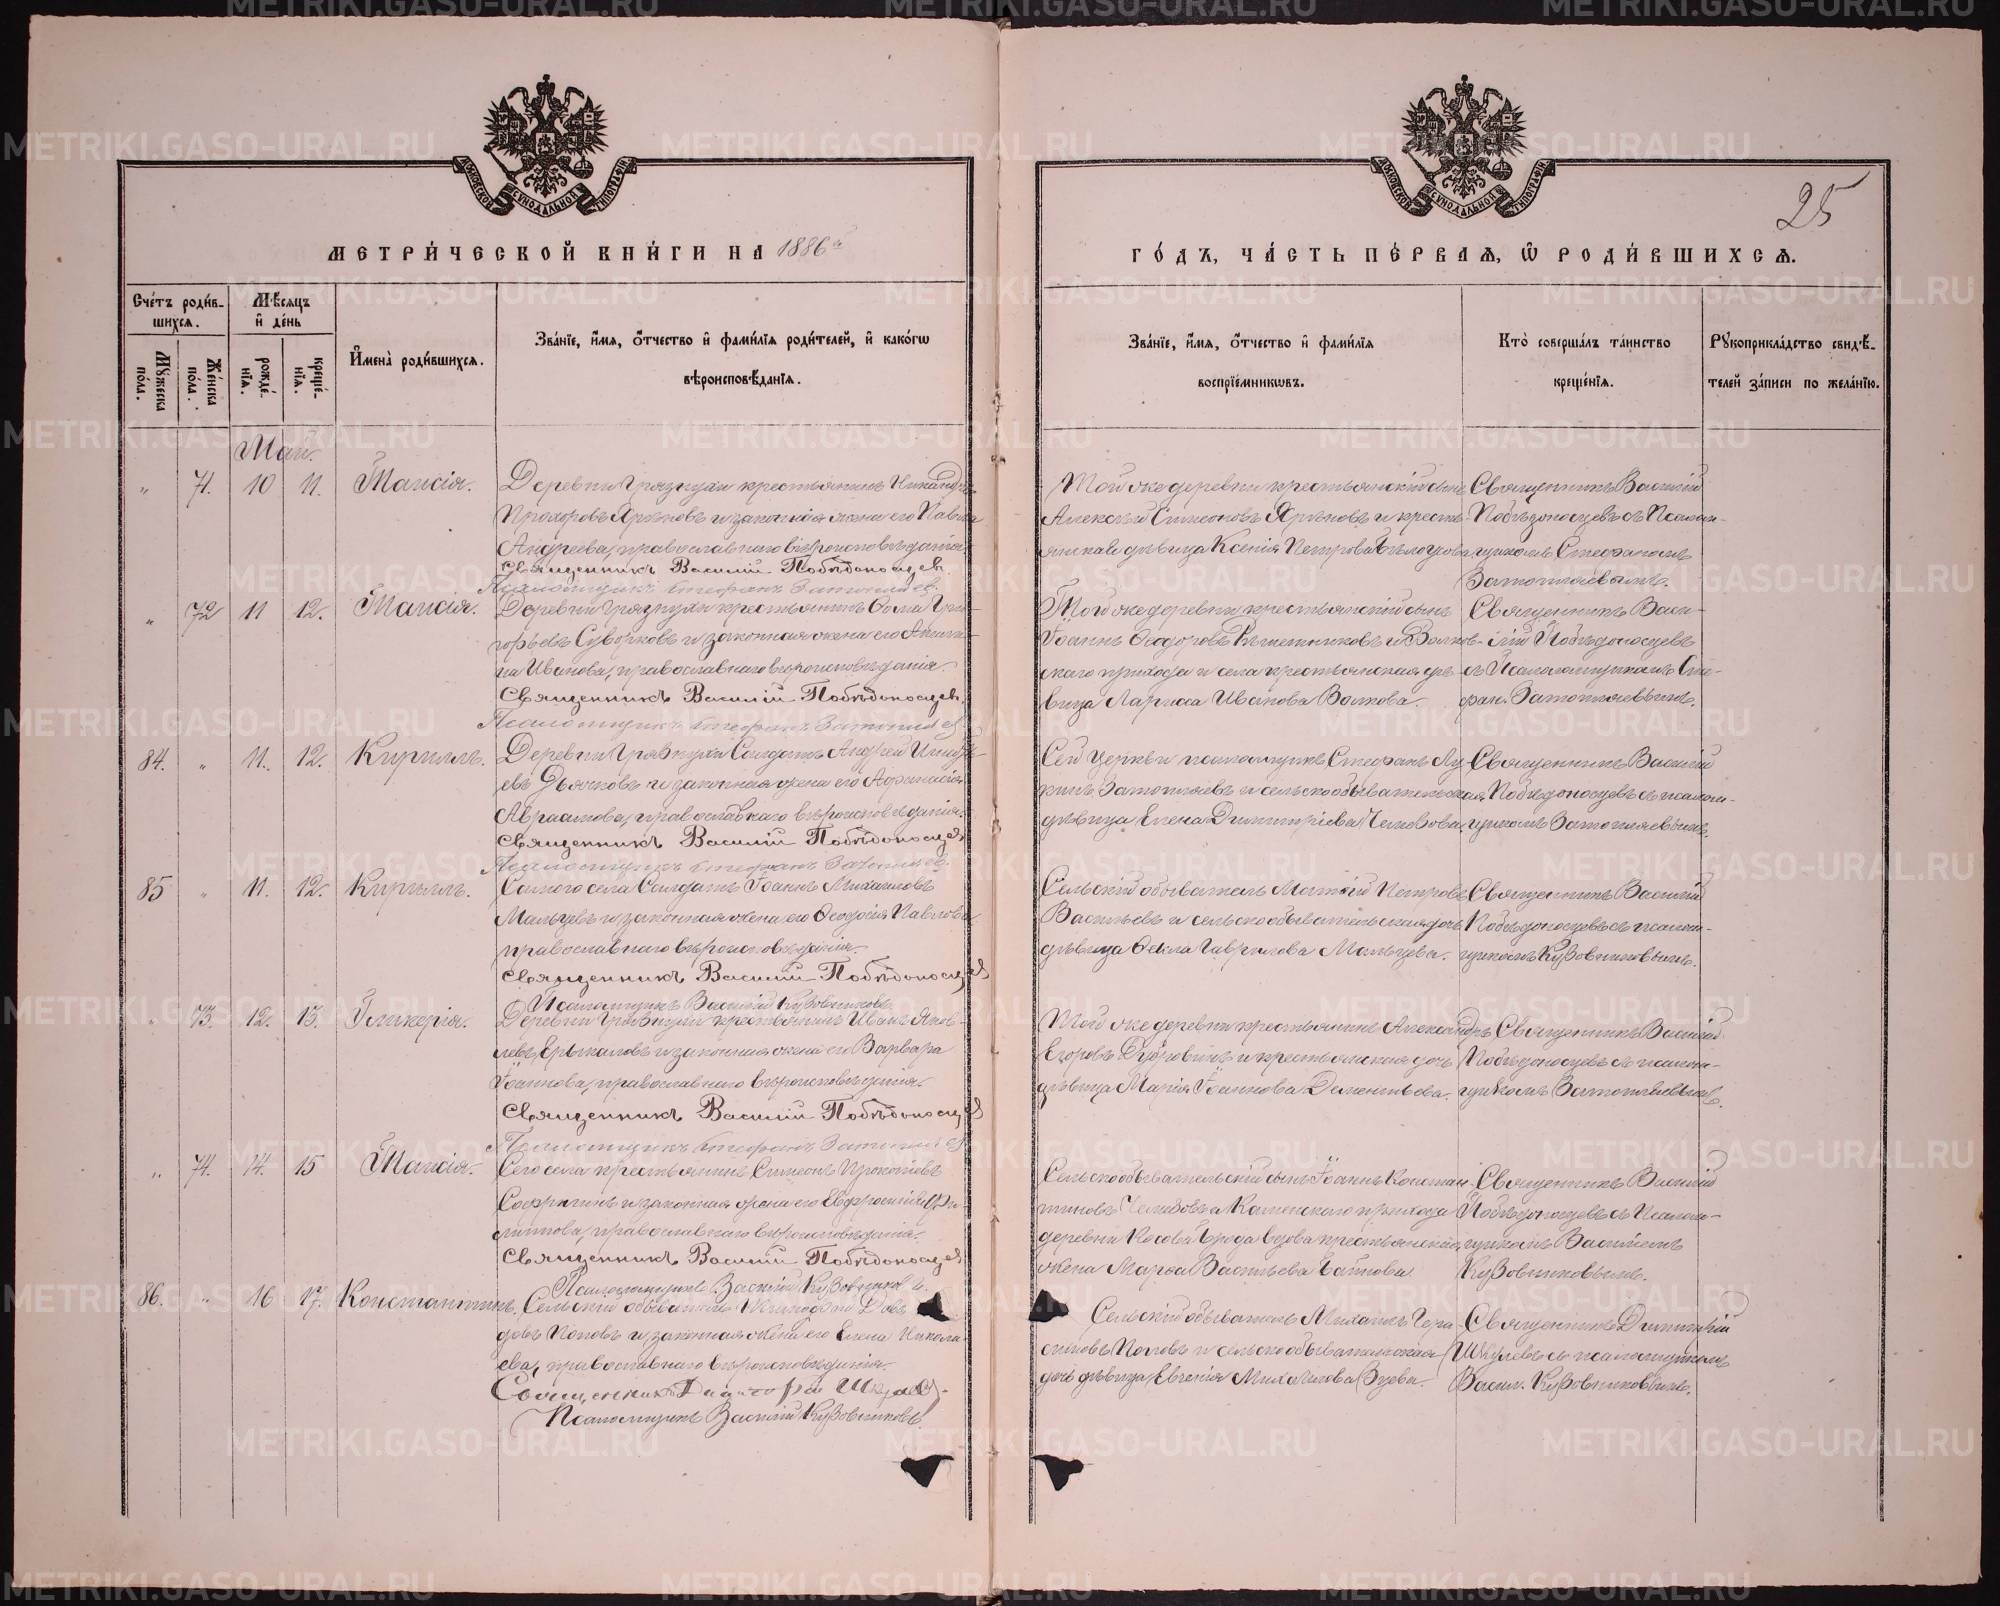 МЕТРИ́ЧЕСКОЙ КНИ́ГИ НА 1886й
ГО́ДЪ, ЧА́СТЬ ПЕ́РВАЯ, Ѡ РОДИ́ВШИХСЯ.
25
Сче́тъ роди́в-
шихся.
Мѣсяцъ
и де́нь
Мꙋжеска по́ла.
Же́нска по́ла.
рожде́-
нїя.
креще́-
нїя.
Имена̀ роди́вшихся.
Зва́нїе, и́мя, о́тчество и фами́лїя роди́телей, и како́гѡ
вѣроисповѣ́данїя.
Зва́нїе, и́мя, о́тчество и фами́лїя
воспрїе́мникѡвъ.
Кто̀ соверша́лъ та́инство
креще́нїя.
Рꙋкоприкла́дство свидѣ́-
телей за́писи по жела́нїю.
Май.
" 71. 10 11. Таисія.
Деревни Грязнухи крестьянинъ Никандръ
Прохоровъ Яръновъ и законная жена его Павла
Андреева, православнаго вѣроисповѣданія.
Священникъ Василій Побѣдоносцев.
Псаломщикъ Стефанъ Затопляев.
Той же деревни крестьянскій сынъ
Алексѣй Симеоновъ Яръновъ и кресть-
янская дѣвица Ксенія Петрова
Священникъ Василій
Побѣдоносцевъ съ Псалом-
щикомъ Стефаномъ
Затопляевымъ.
" 72 11 12. Таисія.
Деревни Грязнухи крестьянинъ Ѳома Гри-
горьевъ и законная жена его
Иванова, православнаго вѣроисповѣданія.
Священникъ Василій Побѣдоносцев.
Псаломщикъ Стефанъ Затопляев
Той же деревни крестьянскій сынъ
Іоаннъ Ѳеодоровъ и Волков-
скаго прихода и села крестьянская дѣ-
вица Лариса Иванова Волкова.
Священникъ Васи-
лій Побѣдоносцевъ
съ Псаломщикомъ Сте-
фан. Затопляевымъ.
84. " 11. 12. Кириллъ.
Деревни Грязнухи Солдатъ Андрей
евъ Дьячковъ и законная жена его Аѳанасія
Авраамова, православнаго вѣроисповѣданія.
Священникъ Василій Побѣдоносцев
Псаломщикъ Стефанъ Затопляев.
Сей церкви псаломщикъ Стефанъ Лу-
кинъ Затопляевъ и сельскообывательская
дѣвица Елена Димитріева Чемезова.
Священникъ Василій
Побѣдоносцевъ съ псалом-
щикомъ Затопляевымъ.
85 " 11. 12. Кириллъ.
Самого села Солдатъ Іоаннъ Михаиловъ
Мальцевъ и законная жена его Ѳеодосія Павлова
православнаго вѣроисповѣданія.
Священникъ Василій Побѣдоносцев
Псаломщикъ Василій Кузовниковъ
Сельскій обыватель Матѳій Петровъ
Васильевъ и сельскообывательская дочь
дѣвица Ѳекла Гаврилова Мальцева.
Священникъ Василій
Побѣдоносцевъ съ псалом-
щикомъ Кузовниковымъ.
" 73. 12. 13. Гликерія.
Деревни Грязнухи крестьянинъ Иванъ Яков-
левъ Ерыкаловъ и законная жена его Варвара
Іоаннова, православнаго вѣроисповѣданія.
Священникъ Василій Побѣдоносцев
Псаломщикъ Стефанъ Затопляев
Той же деревни крестьянинъ Александръ
Егоровъ Дубровинъ и крестьянская дочь
дѣвица Марія Іоаннова Дементьева.
Священникъ Василій
Побѣдоносцевъ съ псалом-
щикомъ Затопляевымъ.
" 74. 14. 15 Таисія.
Сего села крестьянинъ Симеонъ Прокопіевъ
Софрыгинъ и законная жена его Евфросинія Фи-
липпова, православнаго вѣроисповѣданія.
Священникъ Василій Побѣдоносцев
Псаломщикъ Василій Кузовниковъ.
Сельскообывательскій сынъ Іоаннъ Констан-
тиновъ Чемезовъ а Каменскаго прихода
деревни вдова крестьянская
жена Марѳа Васильева
Священникъ Василій
Побѣдоносцевъ съ Псалом-
щикомъ Василіемъ
Кузовниковымъ.
86. " 16 17. Константинъ.
Сельскій обыватель Никифоръ Давы-
довъ Поповъ и законная жена его Елена Никола-
ева, православнаго вѣроисповѣданія.
Псаломщикъ Василій Кузовниковъ
Сельскій обыватель Михаилъ Гера-
симовъ Поповъ и сельскообывательская
дочь дѣвица Евгенія Михайлова Зуева.
Священникъ Димитрій
съ псаломщикомъ
Васил. Кузовниковымъ.
METRIKI.GASO-URAL.RU